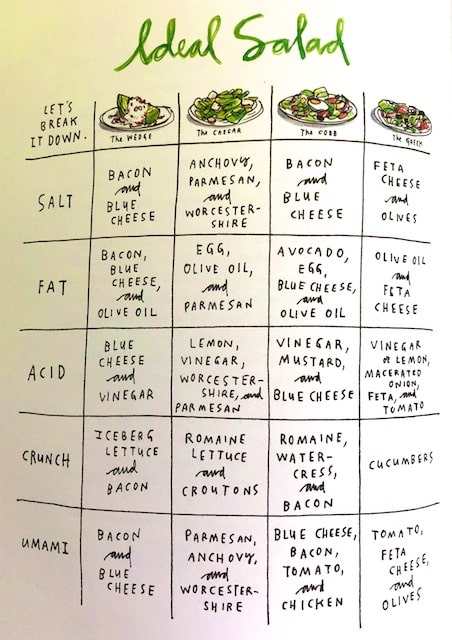 Ideal Salad
LET'S
BREAK
IT DOWN.
The WEDGE
The CAESAR
The COBB
The GREEK
SALT
BACON
and
BLUE
CHEESE
ANCHOVY,
PARMESAN,
and
WORCESTER-
SHIRE
BACON
and
BLUE
CHEESE
FETA
CHEESE
and
OLIVES
FAT
BACON,
BLUE
CHEESE,
and
OLIVE OIL
EGG,
OLIVE OIL,
and
PARMESAN
AVOCADO,
EGG,
BLUE CHEESE,
and
OLIVE OIL
OLIVE OIL
and
FETA
CHEESE
ACID
BLUE
CHEESE
and
VINEGAR
LEMON,
VINEGAR,
WORCESTER-
SHIRE, and
PARMESAN
VINEGAR,
MUSTARD,
and
BLUE CHEESE
VINEGAR
or LEMON,
MACERATED
ONION,
FETA, and
TOMATO
CRUNCH
ICEBERG
LETTUCE
and
BACON
ROMAINE
LETTUCE
and
CROUTONS
ROMAINE,
WATER-
CRESS,
and
BACON
CUCUMBERS
UMAMI
BACON
and
BLUE
CHEESE
PARMESAN,
ANCHOVY,
and
WORCESTER-
SHIRE
BLUE CHEESE,
BACON,
TOMATO,
and
CHICKEN
TOMATO,
FETA
CHEESE,
and
OLIVES